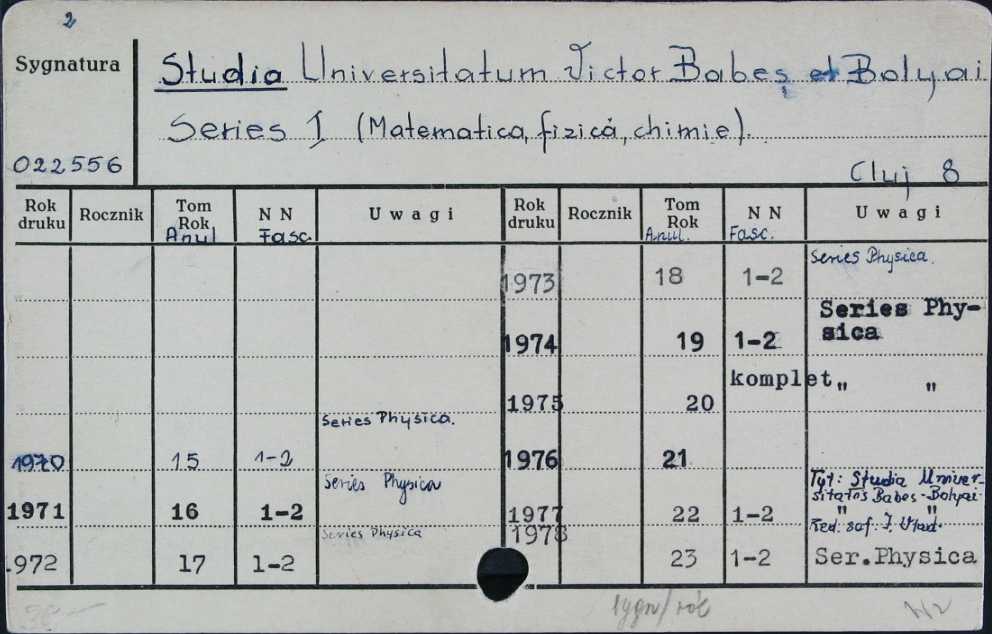 2
Sygnatura
Studia Universitatum Victor Babeş et Bolyai
Series I (Matematica, fizică, chimie).
022556
Cluj 8
Rok druku Rocznik Tom Rok Anul N N Fasc. Uwagi Rok druku Rocznik Tom Rok Anul. N N Fasc. Uwagi
1973 18 1-2 Series Physica.
1974 19 1-2 Series Phy-
sica
1975 20 komplet " "
Series Physica.
1970 15 1-2
1976 21
Series Physica
1971 16 1-2
Tyt: Studia Univer-
sitatis Babeş-Bolyai
1977 22 1-2 " "
Red. şef. I. Vlad.
Series Physica
1972 17 1-2
1978 23 1-2 Ser.Physica
sygn/rok